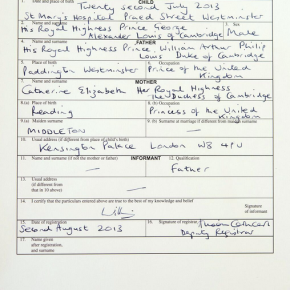 1. Date and place of birth CHILD
Twenty second July 2013
St Mary's Hospital Praed Street Westminster
2. Name and surname 3. Sex
His Royal Highness Prince George
Alexander Louis of Cambridge Male
4. Name and surname FATHER
His Royal Highness Prince William Arthur Philip
Louis Duke of Cambridge
5. Place of birth 6. Occupation
Paddington Westminster Prince of the United
Kingdom
7. Name and surname MOTHER
Catherine Elizabeth Her Royal Highness
The Duchess of Cambridge
8.(a) Place of birth 8.(b) Occupation
Reading Princess of the United
Kingdom
9.(a) Maiden surname 9.(b) Surname at marriage if different from maiden surname
MIDDLETON —
10. Usual address (if different from place of child's birth)
Kensington Palace London W8 4PU
11. Name and surname (if not the mother or father) INFORMANT 12. Qualification
— Father
13. Usual address
(if different from
that in 10 above) —
14. I certify that the particulars entered above are true to the best of my knowledge and belief
Signature
of informant
15. Date of registration 16. Signature of registrar
Second August 2013 Deputy Registrar
17. Name given
after registration,
and surname